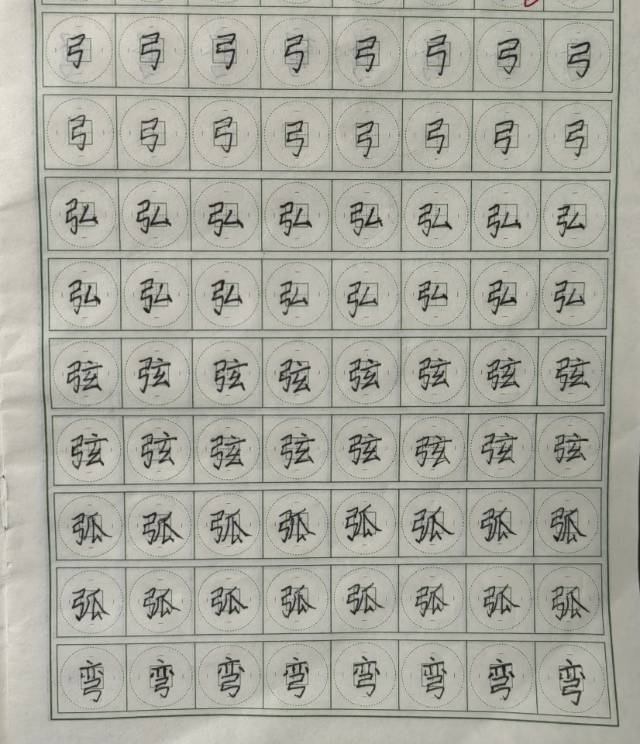 弓弓弓弓弓弓弓弓
弓弓弓弓弓弓弓弓
弘弘弘弘弘弘弘弘
弘弘弘弘弘弘弘弘
弦弦弦弦弦弦弦弦
弦弦弦弦弦弦弦弦
弧弧弧弧弧弧弧弧
弧弧弧弧弧弧弧弧
弯弯弯弯弯弯弯弯